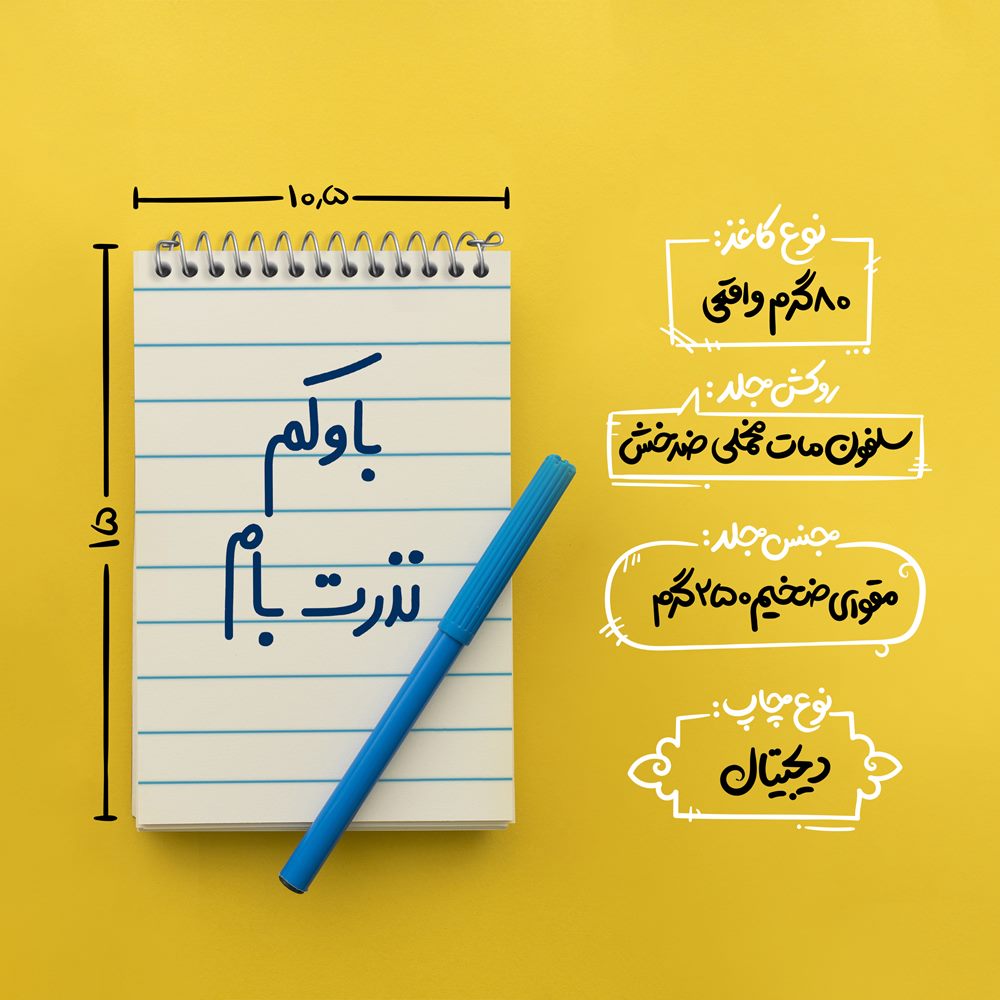 ۱۰,۵
۱۵
باوکم
تذرت بام
نوع کاغذ:
۸۰گرم واقعی
روکش جلد:
سلفون مات مخملی ضدخش
جنس جلد:
مقوای ضخیم ۲۵۰گرم
نوع چاپ:
دیجیتال